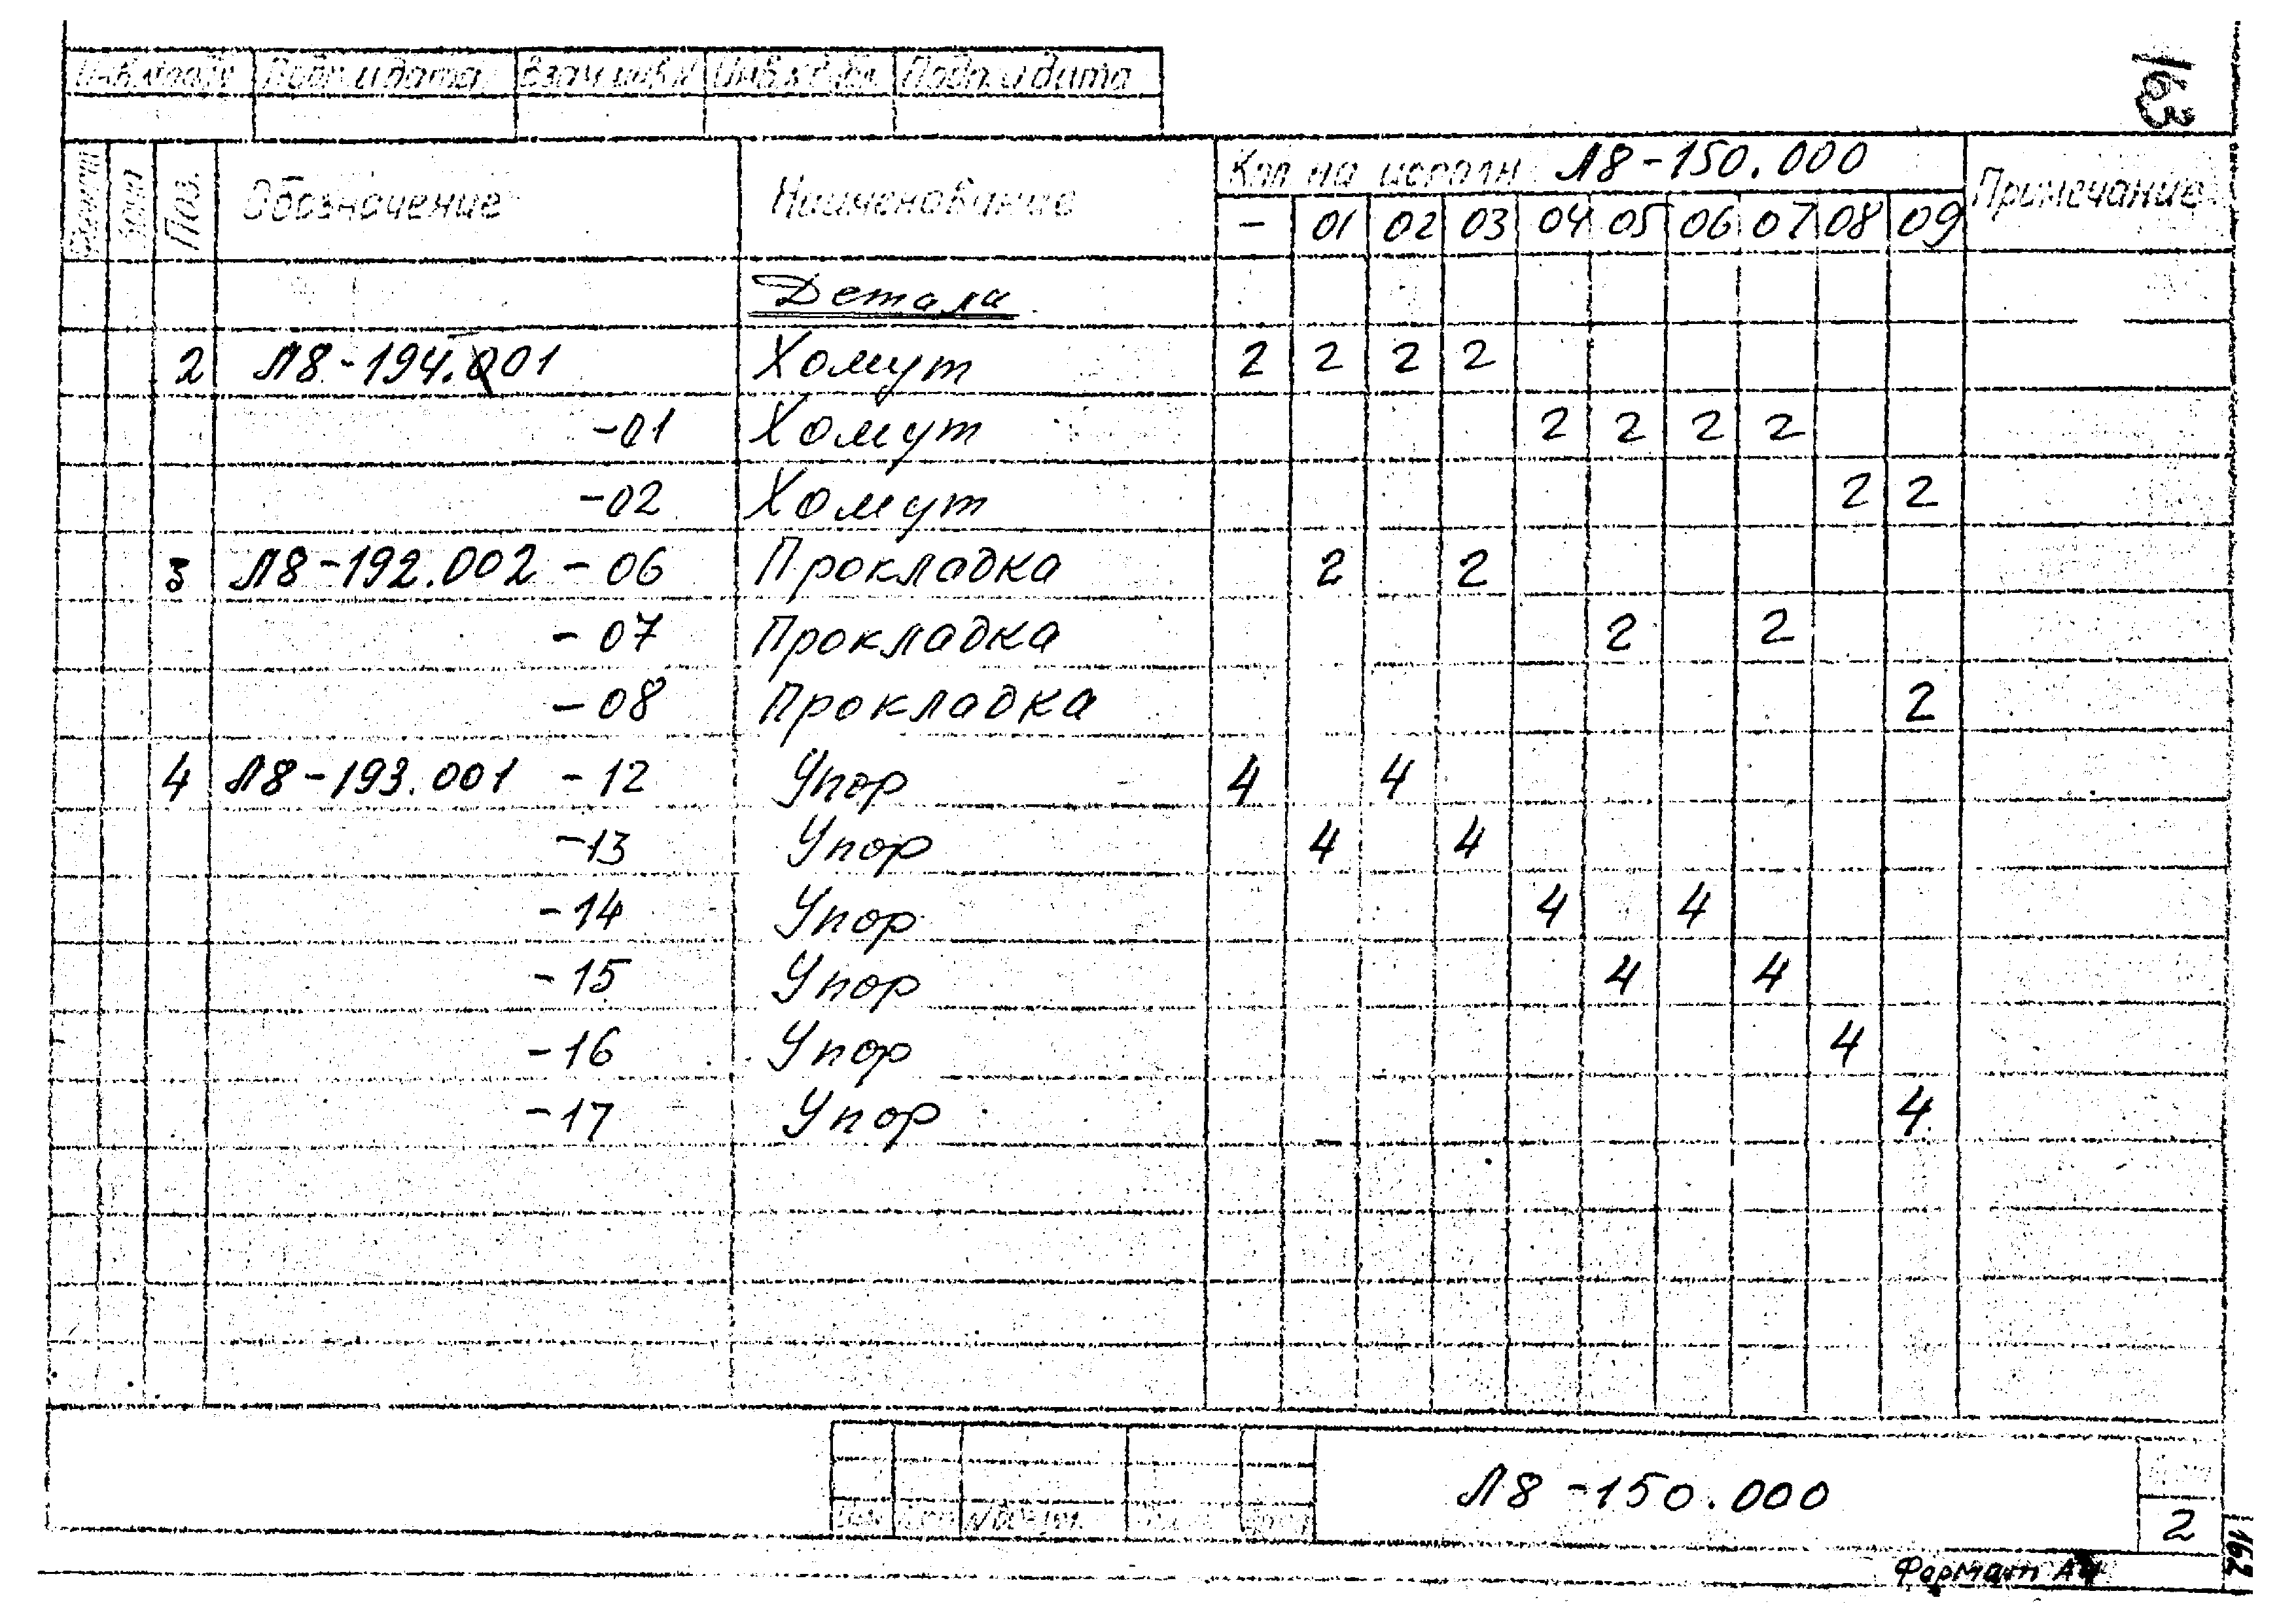 163
Инв.№подл Подп. и дата Взам.инв.№ Инв.№дубл. Подп. и дата
Формат Зона Поз. Обозначение Наименование Кол на исполн. Л8-150.000 Примечание
- 01 02 03 04 05 06 07 08 09
Детали
2 Л8-194.001 Хомут 2 2 2 2
-01 Хомут 2 2 2 2
-02 Хомут 2 2
3 Л8-192.002 -06 Прокладка 2 2
-07 Прокладка 2 2
-08 Прокладка 2
4 Л8-193.001 -12 Упор 4 4
-13 Упор 4 4
-14 Упор 4 4
-15 Упор 4 4
-16 Упор 4
-17 Упор 4
Л8-150.000
Лист
2
162
Формат А4